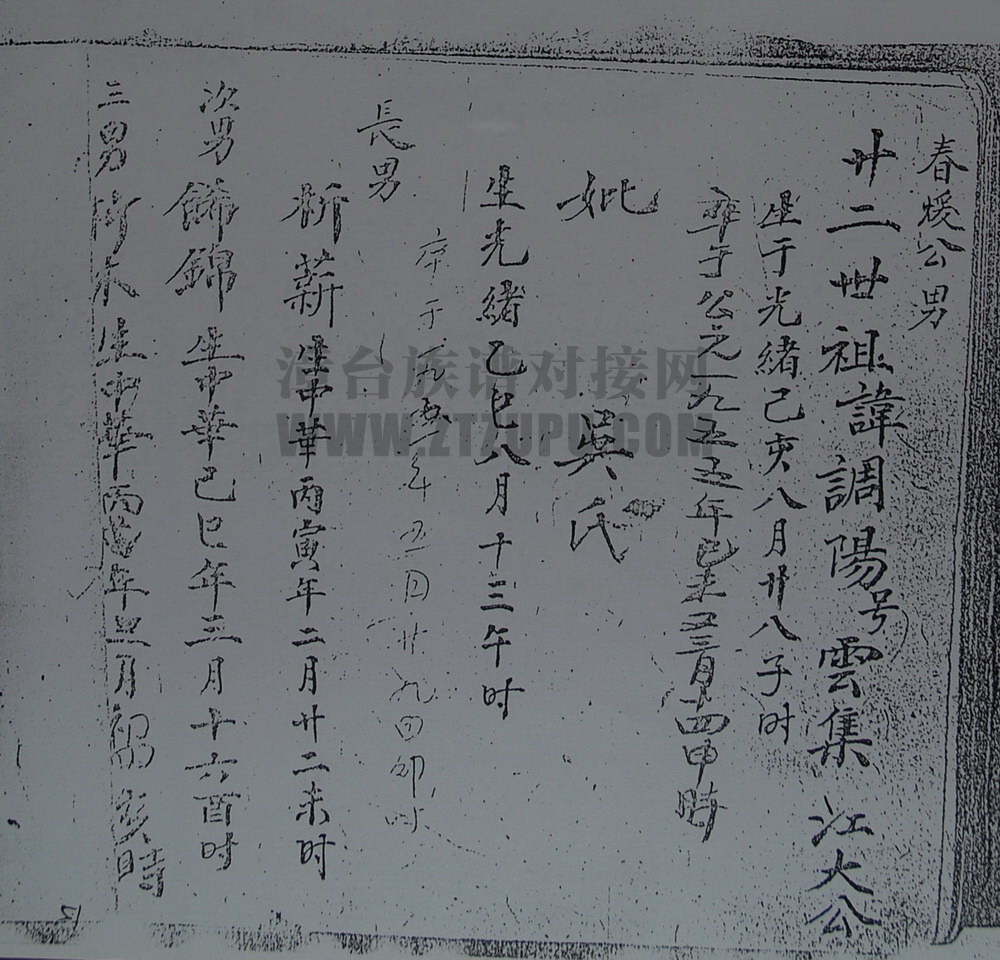 春煖公男
廿二世祖諱調陽号雲集江大公
生于光緒己亥八月廿八子时
卒于公元一九五五年乙未三月十四申時
妣吳氏
生光緒乙巳八月十三午时
卒于一九 年五月廿九日卯时
長男
新生中華丙寅年二月廿二未时
次男
錦生中華己巳年三月十六酉时
三男
竹木生中華丙 年 月初 亥時
漳台族谱对接网
WWW.ZTZUPU.COM